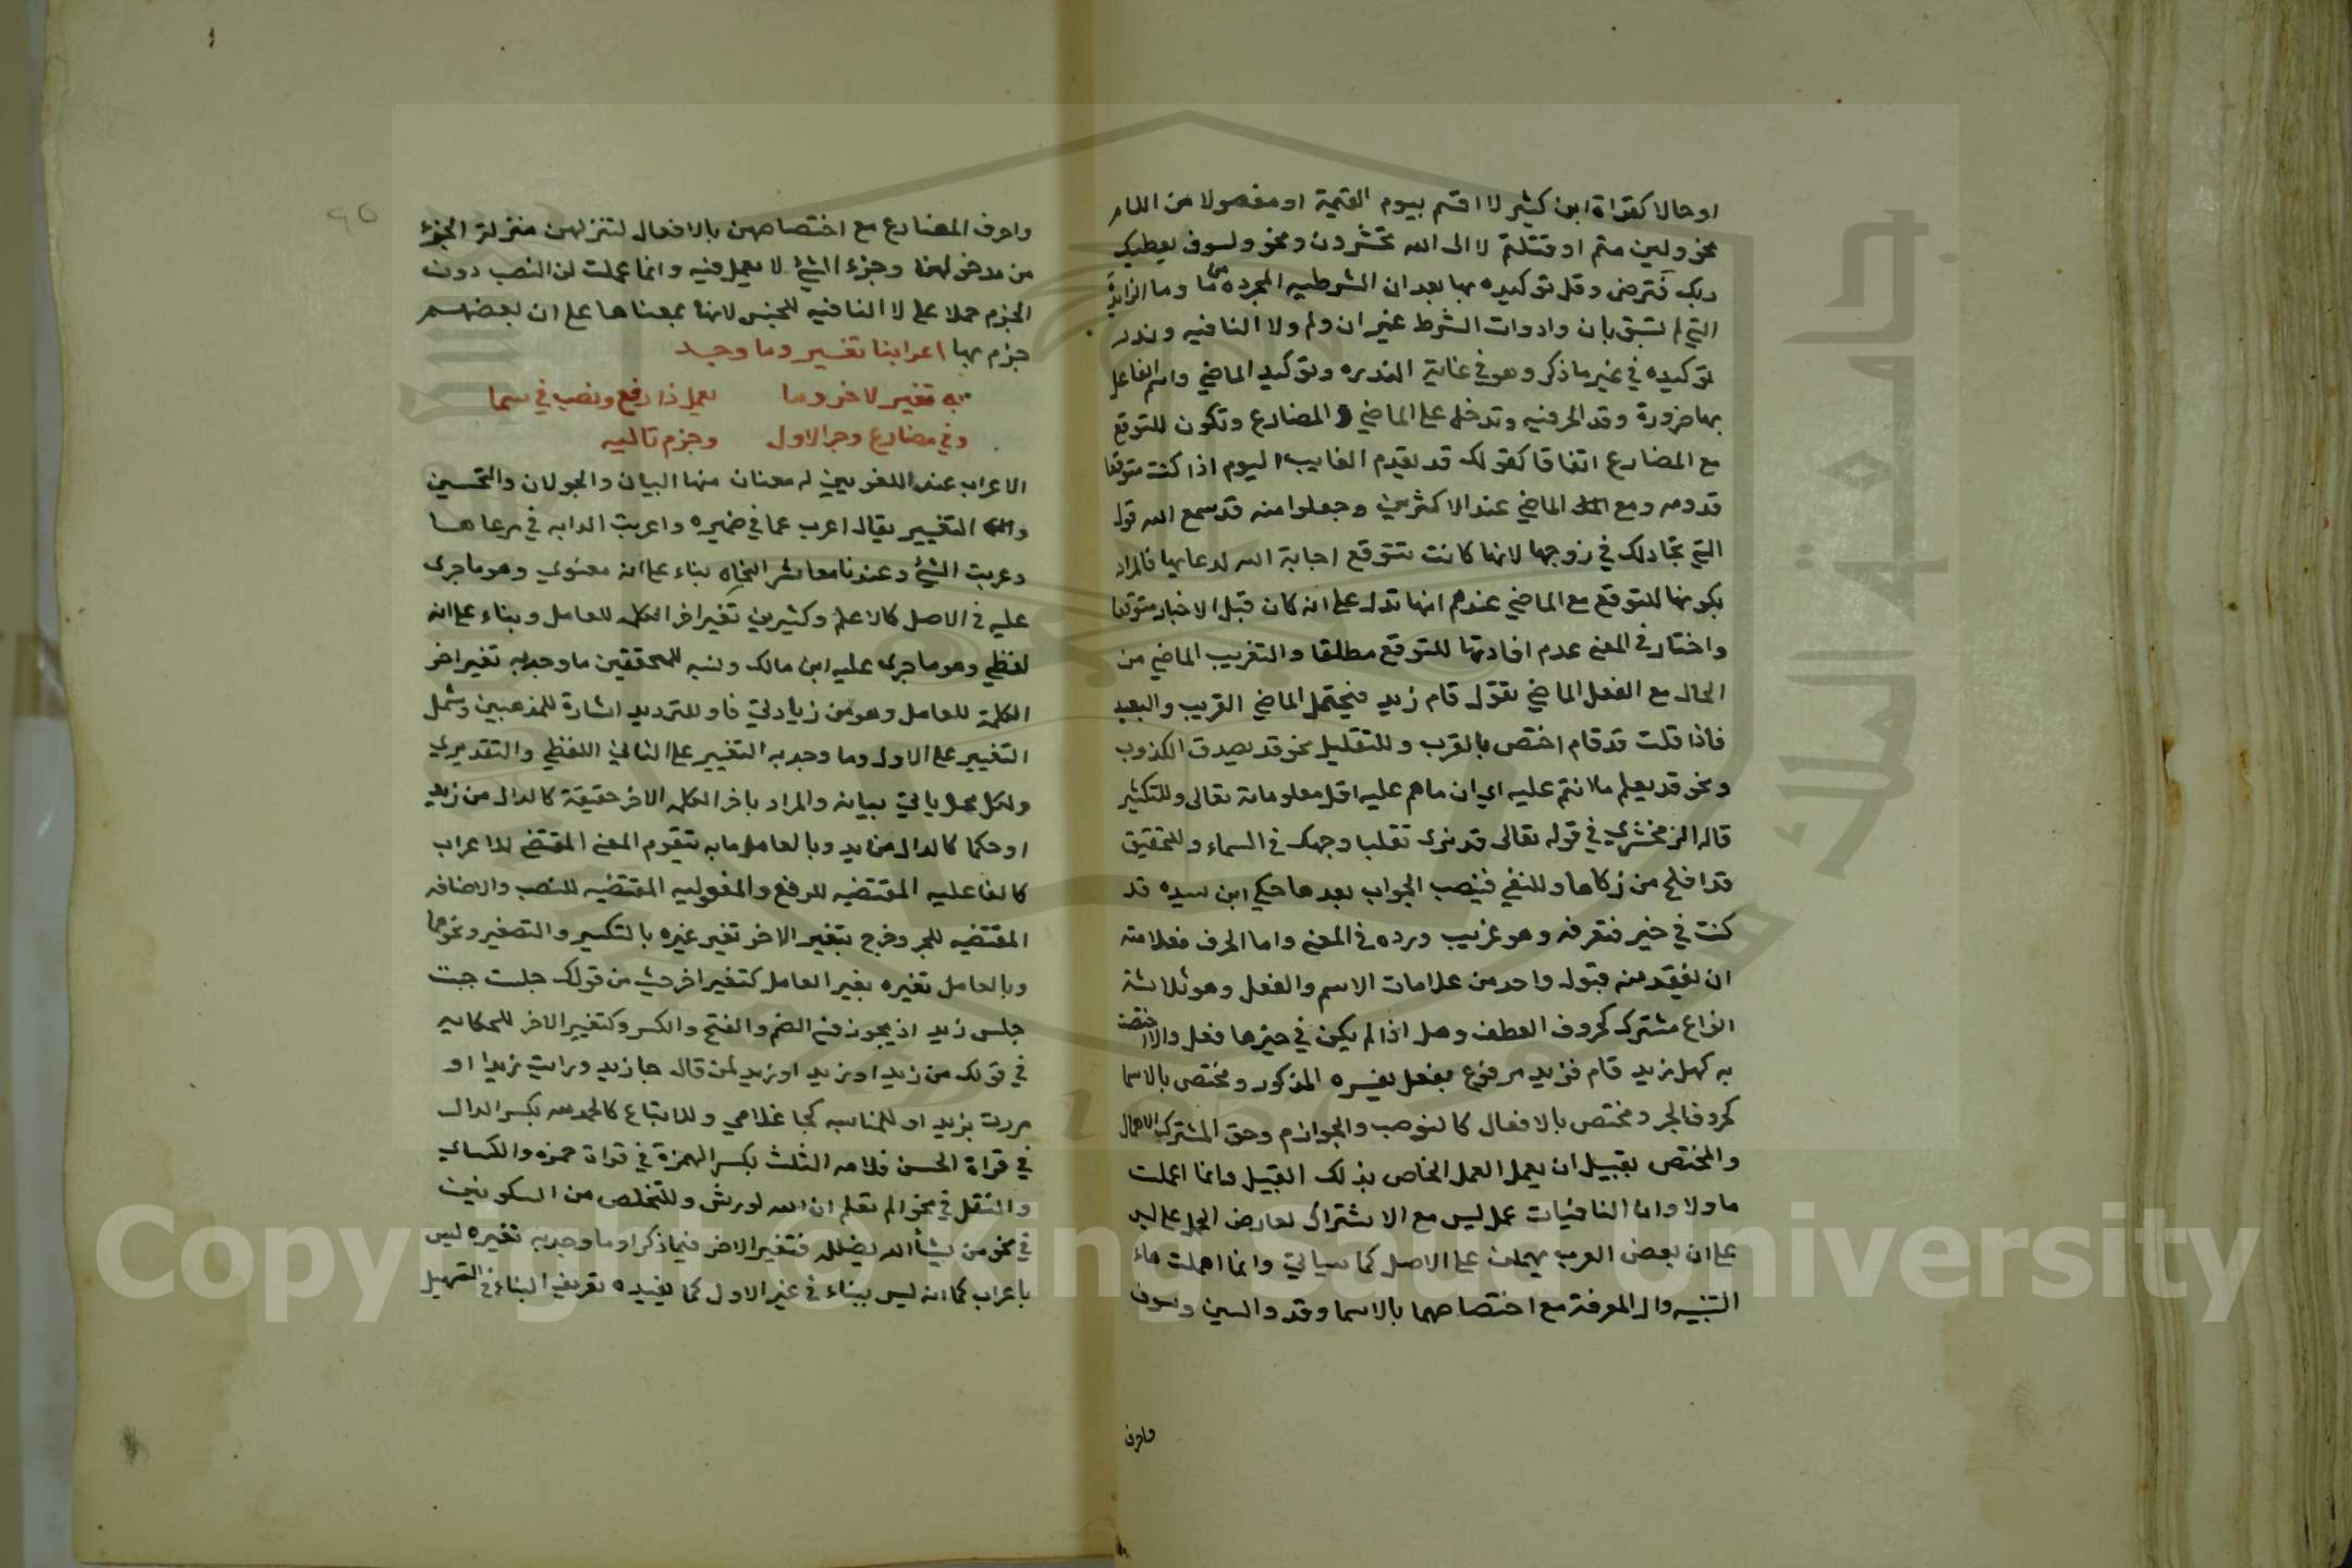 او حالا كقراة ابن كثير لا اقسم بيوم القيمة او مفصولا من اللام
نحو ولين متم او قتلتم لا الى الله تحشرون ونحو ولسوف يعطيك
ربك فترضى وقل توكيده بها بعد ان الشرطيه المجرده من ما وما الزايدة
التي لم تسبق بان وادوات الشرط غير ان ولم ولا النافيه وندر
توكيده في غير ما ذكر وهو في غاية الندره وتوكيد الماضي واسم الفاعل
بها ضرورة وقد الحرفيه وتدخل على الماضي و المضارع وتكون للتوقع
مع المضارع اتفاقا كقولك قد يقدم الغايب اليوم اذا كنت متوقعا
قدومه ومع الماضي عند الاكثرين وجعلوا منه قد سمع الله قول
التي تجادلك في زوجها لانها كانت تتوقع اجابة الله لدعايها فالمراد
بكونها للتوقع مع الماضي عندهم انها تدل على انه كان قبل الاخبار متوقعا
واختار في المغني عدم افادتها للتوقع مطلقا والتقريب الماضي من
الحال مع الفعل الماضي تقول قام زيد فيحتمل الماضي القريب والبعيد
فاذا قلت قد قام اختص بالقرب وللتقليل نحو قد يصدق الكذوب
ونحو قد يعلم ما انتم عليه اي ان ما هم عليه اقل معلوماته تعالى وللتكثير
قاله الزمخشري في قوله تعالى قد نرى تقلب وجهك في السماء وللتحقيق
قد افلح من زكاها وللنفي فينصب الجواب بعدها حكي ابن سيده قد
كنت في خير فتعرفه وهو غريب ورده في المغني واما الحرف فعلامته
ان يفقد منه قبول واحد من علامات الاسم والفعل وهو ثلاثة
انواع مشترك كحروف العطف وهل اذا لم يكن في حيزها فعل والا اختصت
به كهل زيد قام فزيد مرفوع بفعل يفسره المذكور ومختص بالاسما
كحروف الجر ومختص بالافعال كالنوصب والجوازم وحق المشترك الاهمال
والمختص بقبيل ان يعمل العمل الخاص بذلك القبيل وانما اعملت
ما ولا وان النافيات عمل ليس مع الاشتراك لعارض الحمل على ليس
على ان بعض العرب يهملن على الاصل كما سياتي وانما اهملت هاء
التنبيه وال المعرفة مع اختصاصهما بالاسما وقد والسين وسوف
واحرف
واحرف المضارع مع اختصاصهن بالافعال لتنزلهن منزلة الجزء
من مدخولهن وجزء الشئ لا يعمل فيه وانما عملت لن النصب دون
الجزم حملا على لا النافيه للجنس لانها بمعناها على ان بعضهم
جزم بها اعرابنا تغيير وما وجد
به تغير لاخر وما يعمل ذا رفع ونصب في سما
وفي مضارع وجر الاول وجزم تاليه
الاعراب عند اللغويين له معنان منها البيان والجولان والتحسين
والتغيير يقال اعرب عما في ضميره واعربت الدابه في مرعاها
وعربت الشئ وعندنا معاشر النحاه بناء على انه معنوي وهو ما جرى
عليه في الاصل كالاعلم وكثيرين تغير اخر الكلمه للعامل وبناء على انه
لفظي وهو ما جرى عليه ابن مالك ونسبه للمحققين ما وجد به تغير اخر
الكلمة للعامل وهو من زيادتي فاو للترديد اشارة للمذهبين وشمل
التغيير على الاول وما وجد به التغيير على الثاني اللفظي والتقديري
ولكل محل ياتي بيانه والمراد باخر الكلمه الاخر حقيقة كالدال من زيد
او حكما كالدال من يد وبالعامل ما به يتقوم المعنى المقتضي للاعراب
كالفاعليه المقتضيه للرفع والمفعوليه المقتضيه للنصب والاضافه
المقتضيه للجر وخرج بتغير الاخر تغير غيره بالتكسير والتصغير ونحوهما
وبالعامل تغيره بغير العامل كتغير اخر حيث من قولك جلست حيث
جلس زيد اذ يجوز فيه الضم والفتح والكسر وكتغيير الاخر للحكايه
في قولك من زيد او زيدا او زيد لمن قال جا زيد ورايت زيدا او
مررت بزيد او للمناسبه كجا غلامي وللاتباع كالحمد لله بكسر الدال
في قراة الحسن فلامه الثلث بكسر الهمزة في قراة حمزه والكسائي
والنقل في نحو الم تعلم ان الله لورش وللتخلص من السكونين
في نحو من يشأ الله يضلله فتغير الاخر فيما ذكر او ما وجد به تغيره ليس
باعراب كما انه ليس ببناء في غير الاول كما يفيده تعريف البناء في التسهيل
Copyright © King Saud University